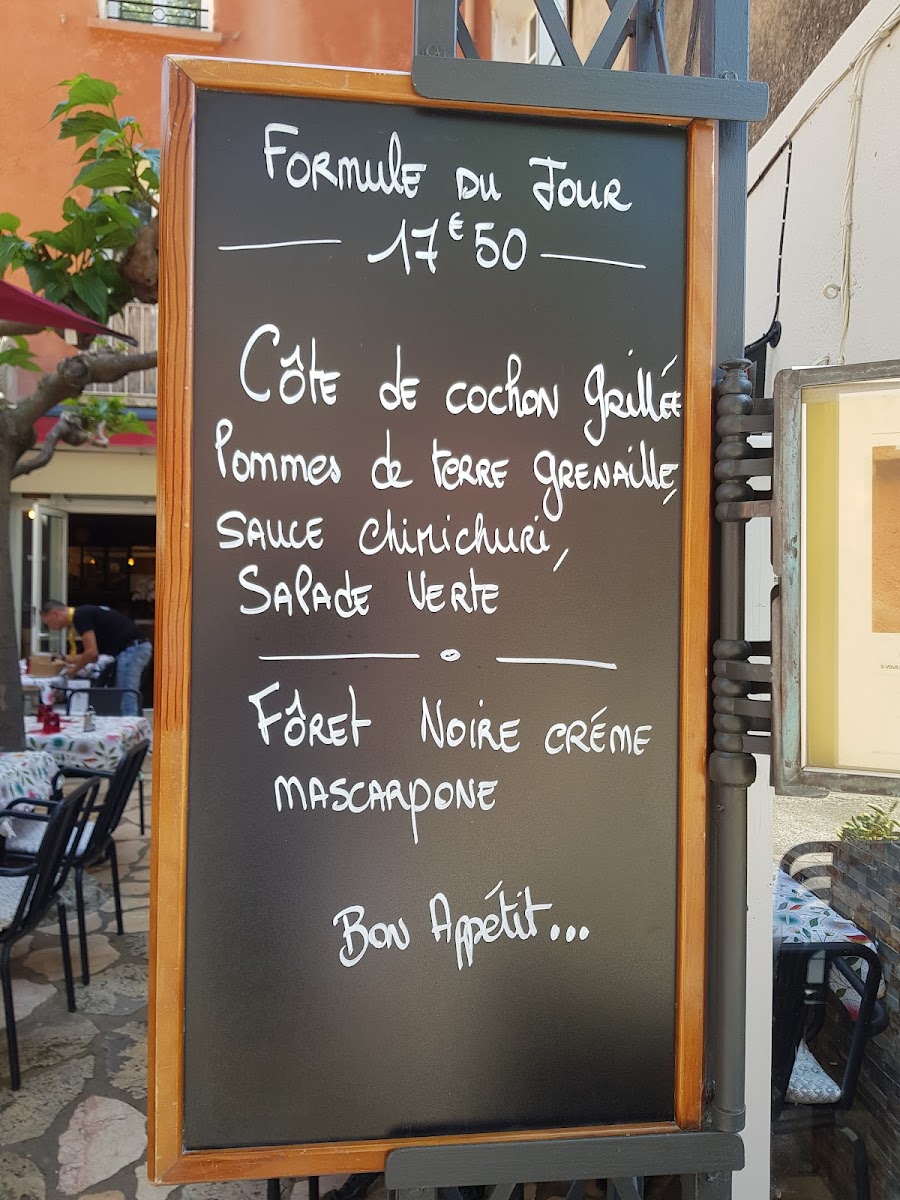 Formule du Jour
17€50
Côte de cochon grillée
Pommes de terre grenaille,
sauce chimichuri,
Salade Verte
Fôret Noire créme
mascarpone
Bon Appétit...
SI VOUS